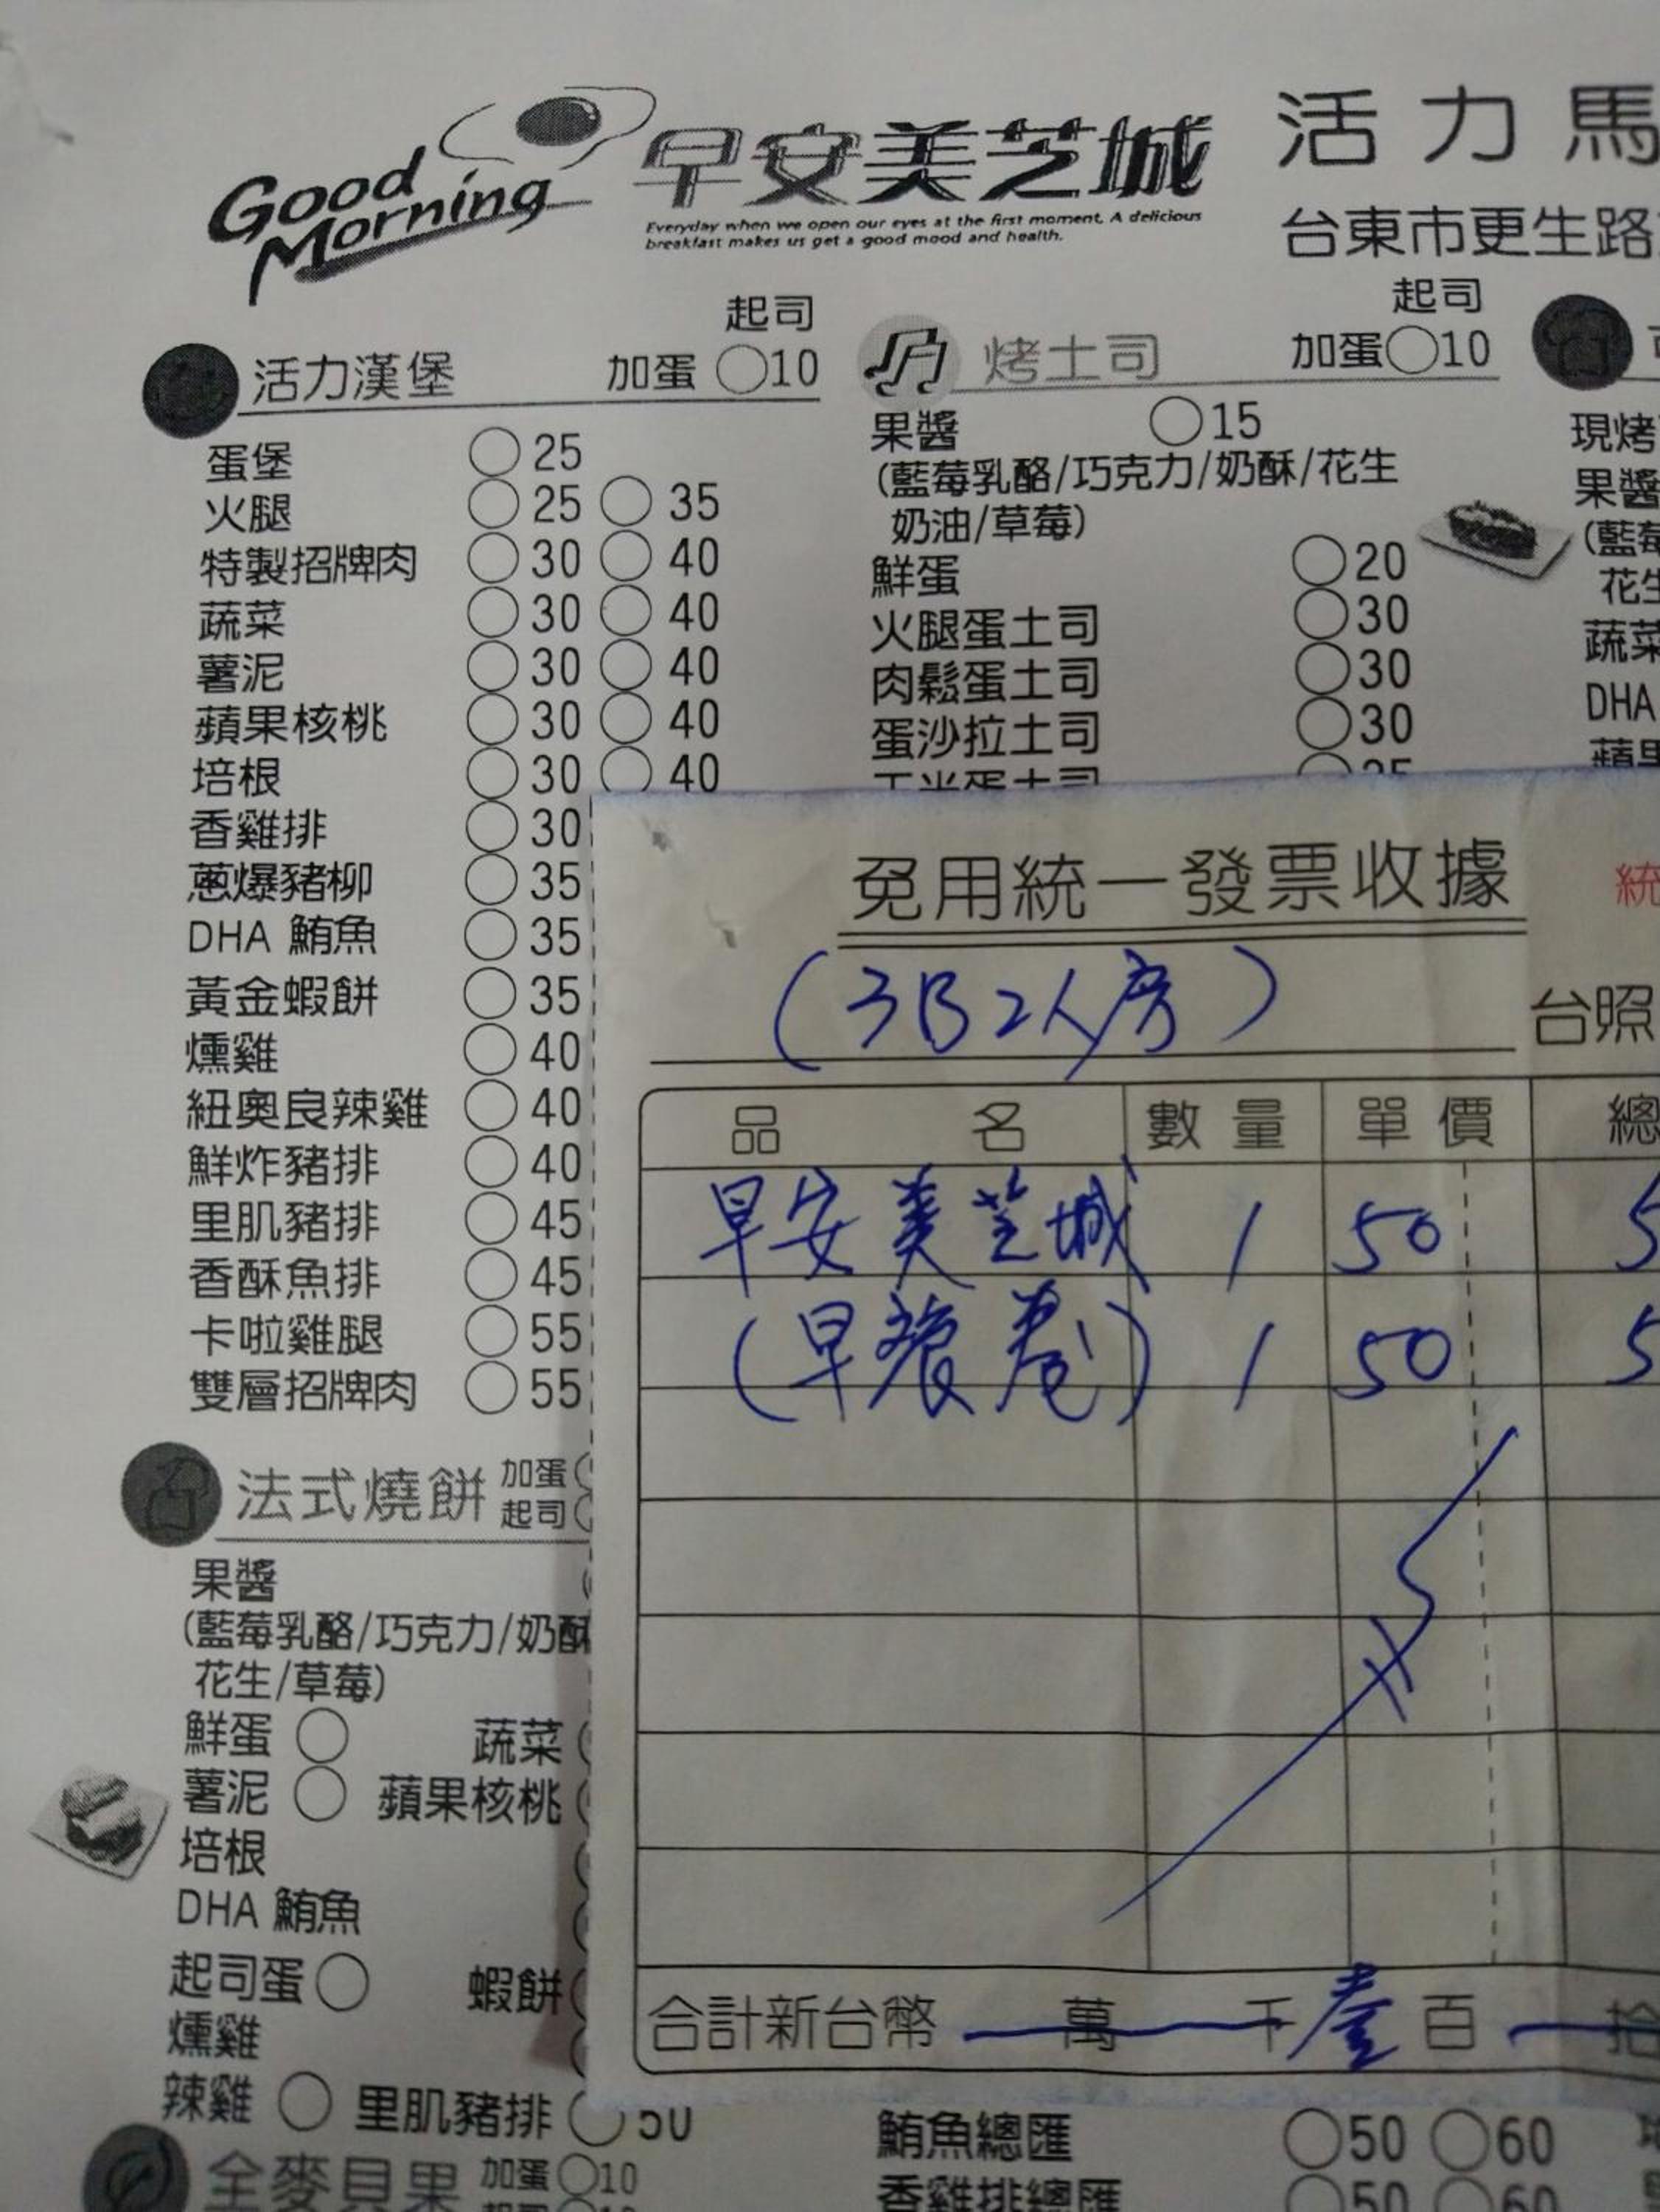 Good Morning
早安美芝城
Everyday when we open our eyes at the first moment, A delicious
breakfast makes us get a good mood and health.
活力馬
台東市更生路
活力漢堡 加蛋 起司 ○10
蛋堡 ○25
火腿 ○25 ○35
特製招牌肉 ○30 ○40
蔬菜 ○30 ○40
薯泥 ○30 ○40
蘋果核桃 ○30 ○40
培根 ○30 ○40
香雞排 ○30
蔥爆豬柳 ○35
DHA 鮪魚 ○35
黃金蝦餅 ○35
燻雞 ○40
紐奧良辣雞 ○40
鮮炸豬排 ○40
里肌豬排 ○45
香酥魚排 ○45
卡啦雞腿 ○55
雙層招牌肉 ○55
法式燒餅 加蛋
起司
果醬
(藍莓乳酪/巧克力/奶酥
花生/草莓)
鮮蛋 ○ 蔬菜
薯泥 ○ 蘋果核桃
培根
DHA 鮪魚
起司蛋 ○ 蝦餅
燻雞
辣雞 ○ 里肌豬排 ○50
全麥貝果 加蛋 ○10
烤土司 加蛋 起司 ○10
果醬 ○15
(藍莓乳酪/巧克力/奶酥/花生
奶油/草莓)
鮮蛋 ○20
火腿蛋土司 ○30
肉鬆蛋土司 ○30
蛋沙拉土司 ○30
鮪魚總匯 ○50 ○60
香雞排總匯 ○50 ○60
現烤
果醬
(藍莓
花生
蔬菜
DHA
免用統一發票收據
統
(3B2人房)
台照
品名 數量 單價 總
早安美芝城 1 50 5
(早餐卷) 1 50 5
合計新台幣 萬 千 壹 百 拾